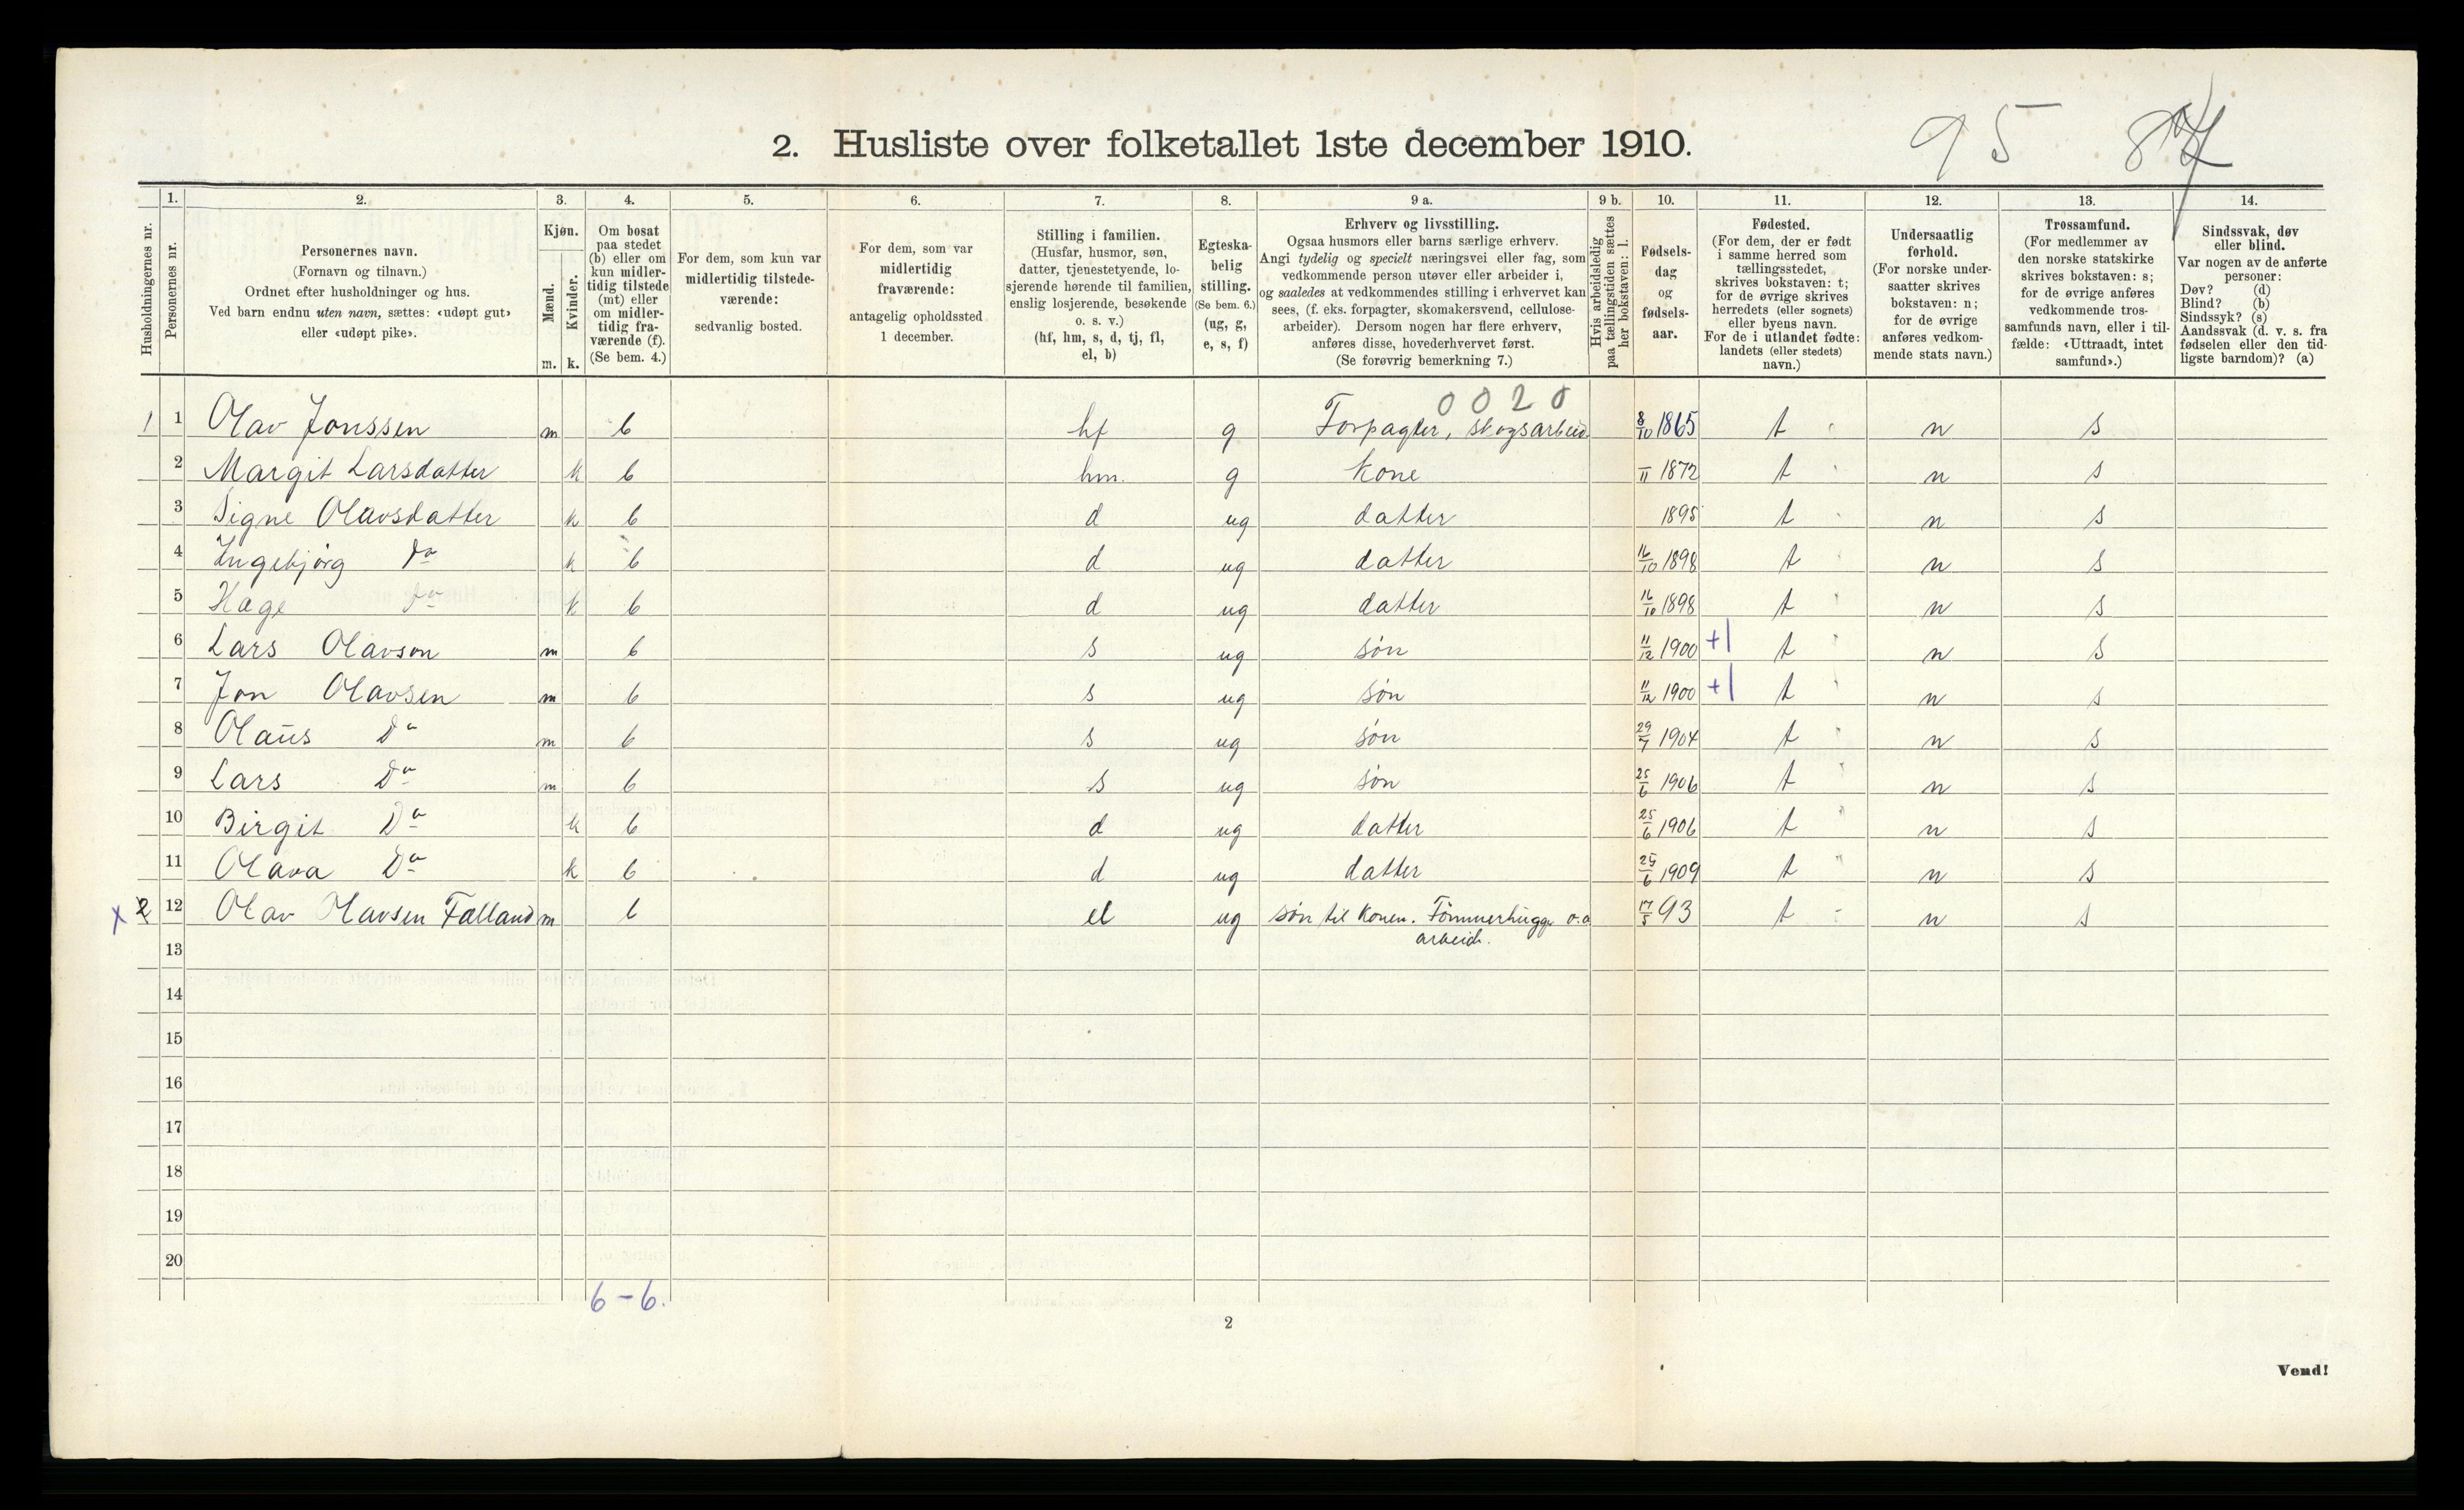 95 84
2. Husliste over folketallet 1ste december 1910.
Husholdningernes nr.
1.
Personernes nr.
2.
Personernes navn.
(Fornavn og tilnavn.)
Ordnet efter husholdninger og hus.
Ved barn endnu uten navn, sættes: «udøpt gut»
eller «udøpt pike».
3.
Kjøn.
Mænd.
Kvinder.
m. k.
4.
Om bosat
paa stedet
(b) eller om
kun midler-
tidig tilstede
(mt) eller
om midler-
tidig fra-
værende (f).
(Se bem. 4.)
5.
For dem, som kun var
midlertidig tilstede-
værende:
sedvanlig bosted.
6.
For dem, som var
midlertidig
fraværende:
antagelig opholdssted
1 december.
7.
Stilling i familien.
(Husfar, husmor, søn,
datter, tjenestetyende, lo-
sjerende hørende til familien,
enslig losjerende, besøkende
o. s. v.)
(hf, hm, s, d, tj, fl,
el, b)
8.
Egteska-
belig
stilling.
(Se bem. 6.)
(ug, g,
e, s, f)
9 a.
Erhverv og livsstilling.
Ogsaa husmors eller barns særlige erhverv.
Angi tydelig og specielt næringsvei eller fag, som
vedkommende person utøver eller arbeider i,
og saaledes at vedkommendes stilling i erhvervet kan
sees, (f. eks. forpagter, skomakersvend, cellulose-
arbeider). Dersom nogen har flere erhverv,
anføres disse, hovederhvervet først.
(Se forøvrig bemerkning 7.)
9 b.
Hvis arbeidsledig
paa tællingstiden sættes
her bokstaven: l.
10.
Fødsels-
dag
og
fødsels-
aar.
11.
Fødested.
(For dem, der er født
i samme herred som
tællingsstedet,
skrives bokstaven: t;
for de øvrige skrives
herredets (eller sognets)
eller byens navn.
For de i utlandet fødte:
landets (eller stedets)
navn.)
12.
Undersaatlig
forhold.
(For norske under-
saatter skrives
bokstaven: n;
for de øvrige
anføres vedkom-
mende stats navn.)
13.
Trossamfund.
(For medlemmer av
den norske statskirke
skrives bokstaven: s;
for de øvrige anføres
vedkommende tros-
samfunds navn, eller i til-
fælde: «Uttraadt, intet
samfund».)
14.
Sindssvak, døv
eller blind.
Var nogen av de anførte
personer:
Døv? (d)
Blind? (b)
Sindssyk? (s)
Aandssvak (d. v. s. fra
fødselen eller den tid-
ligste barndom)? (a)
0 0 2 0
1 1 Olav Jonssen m b hf g Forpagter, skogsarbeid. 8/10 1865 t n s
2 Margit Larsdatter k b hm. g kone /11 1872 t n s
3 Signe Olavsdatter k b d ug datter 1895 t n s
4 Ingebjørg Do k b d ug datter 16/10 1898 t n s
5 Hæge Do k b d ug datter 16/10 1898 t n s
6 Lars Olavson m b s ug søn 11/12 1900 +1 t n s
7 Jon Olavsen m b s ug søn 11/12 1900 +1 t n s
8 Olaus Do m b s ug søn 29/7 1904 t n s
9 Lars Do m b s ug søn 25/6 1906 t n s
10 Birgit Do k b d ug datter 25/6 1906 t n s
11 Olava Do k b d ug datter 25/6 1909 t n s
x 2 12 Olav Olavsen Falland m b el ug søn til konen. Tømmerhugg. o. a. 17/5 93 t - n s
arbeid.
13
14
15
16
17
18
19
20
6 - 6.
2
Vend!